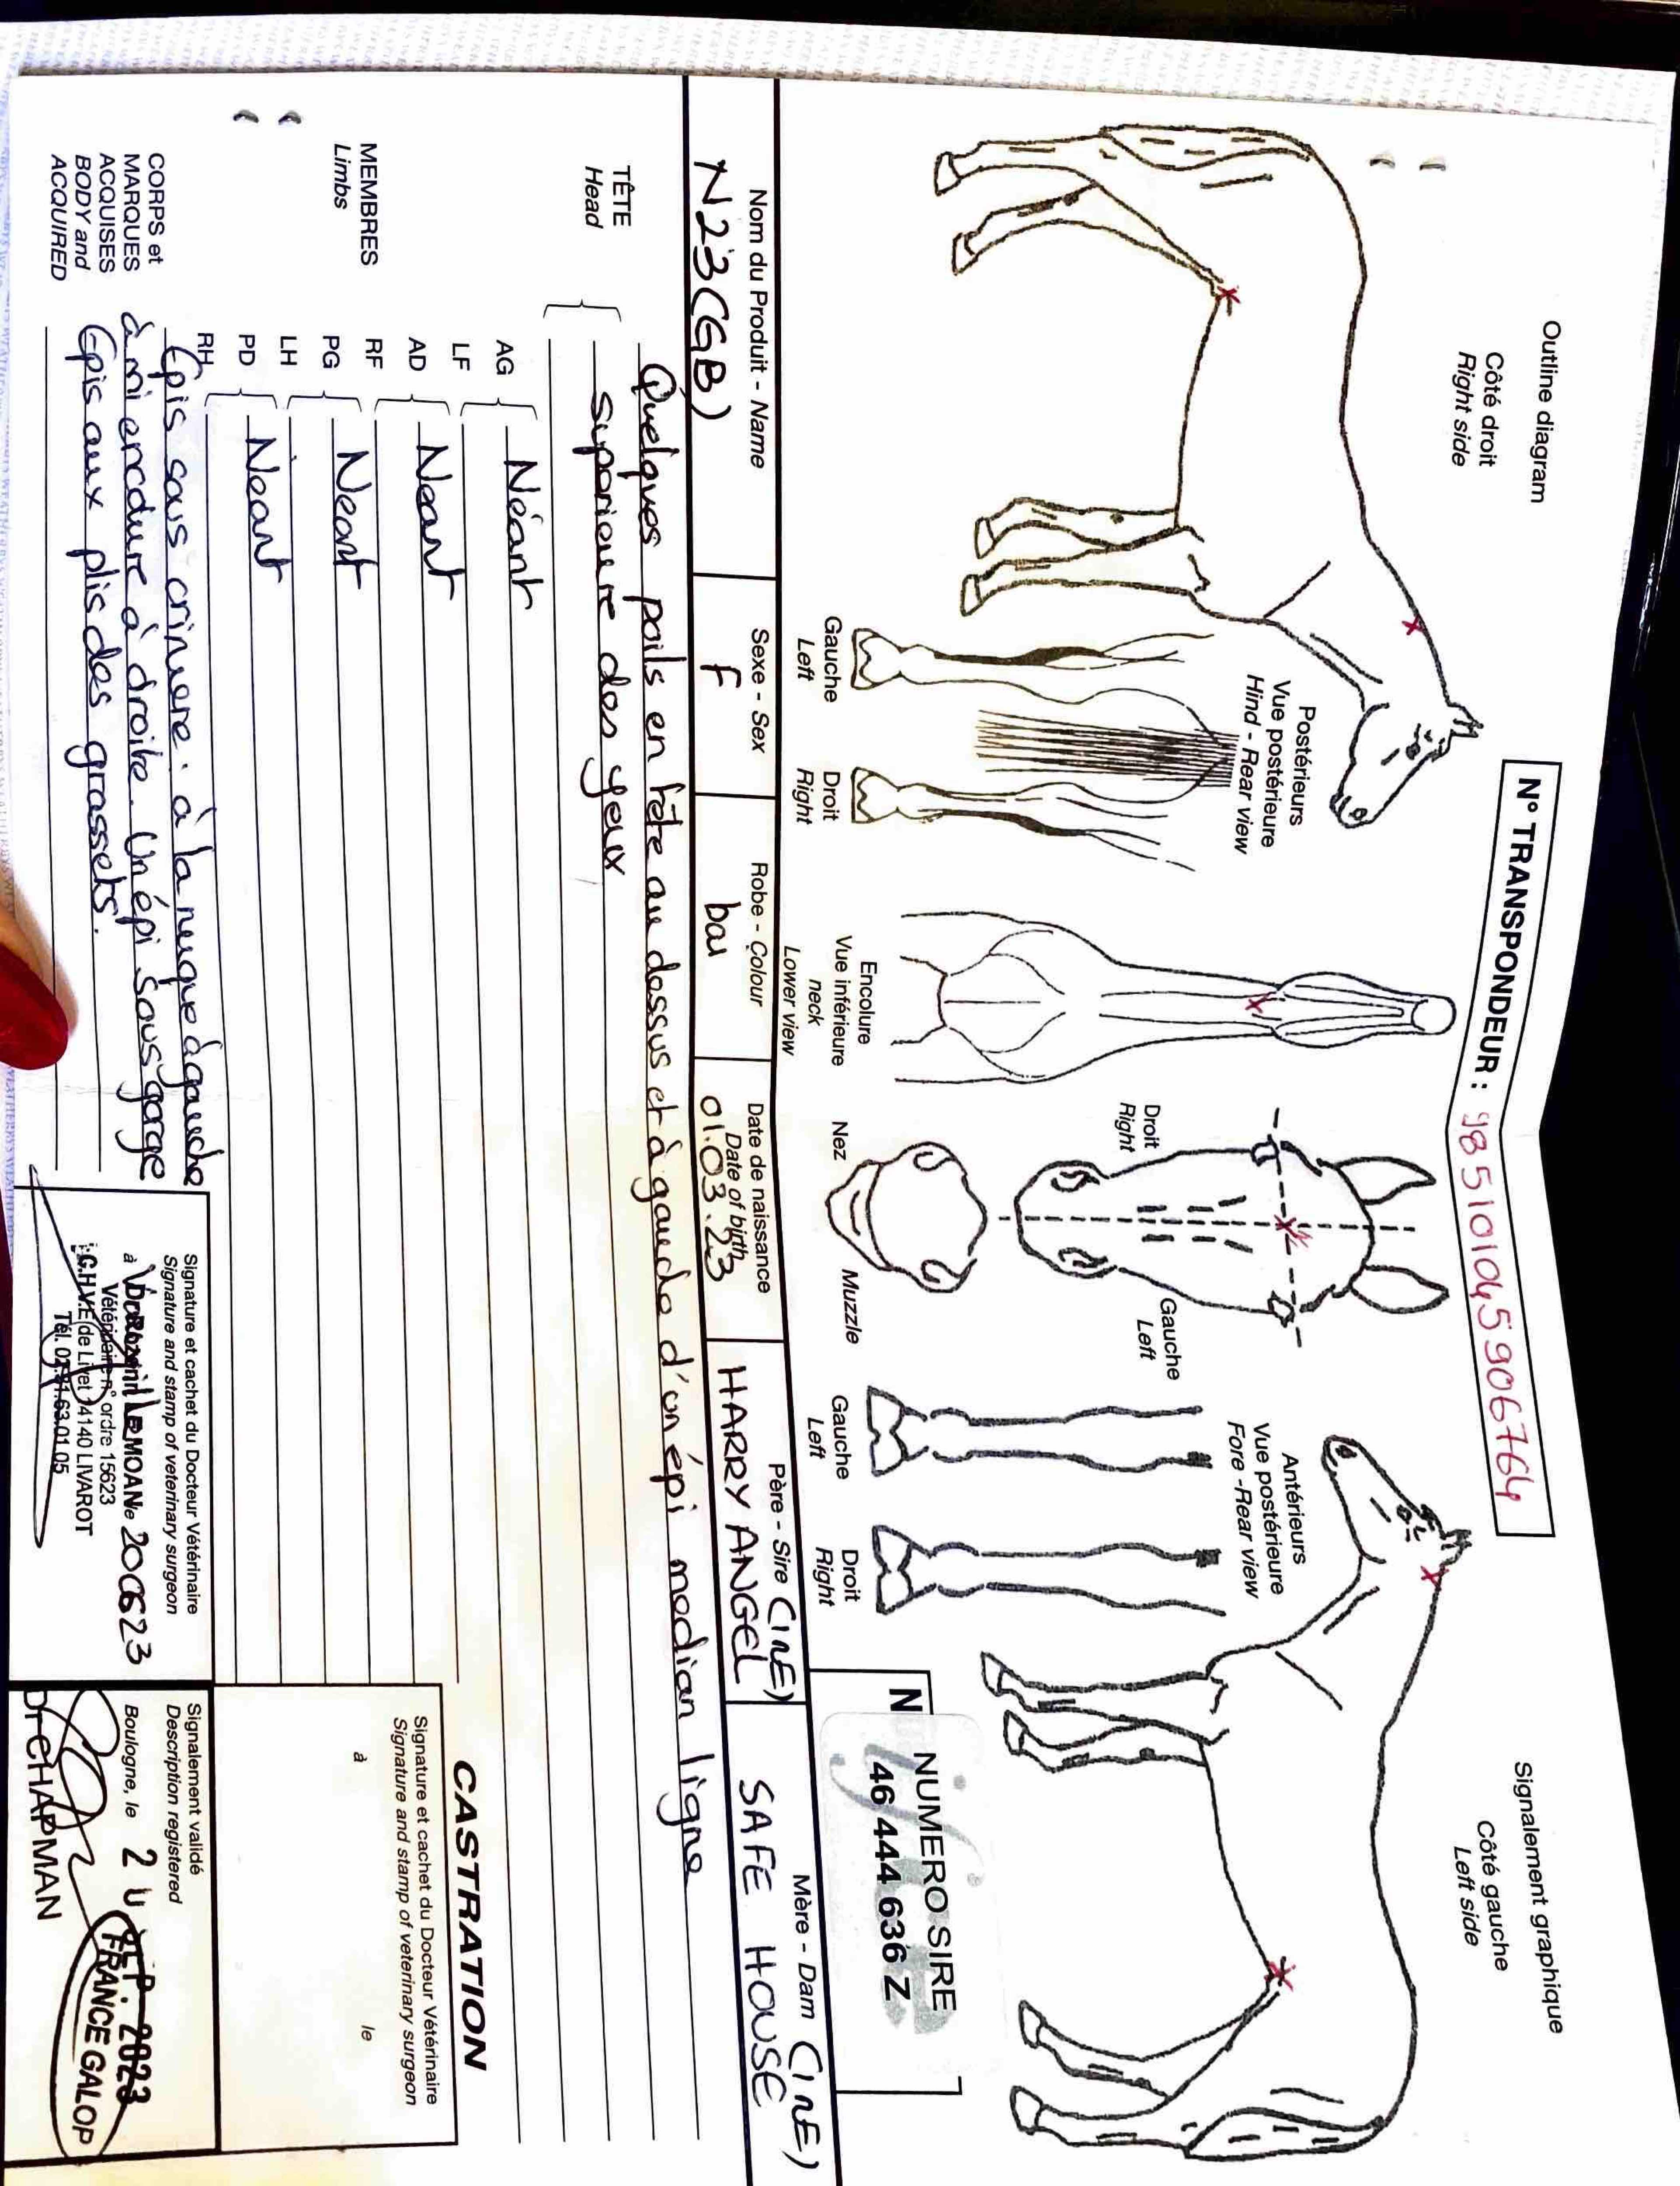 Outline diagram
Côté droit
Right side
N° TRANSPONDEUR : 985101045906764
Signalement graphique
Côté gauche
Left side
Postérieurs
Vue postérieure
Hind - Rear view
Gauche
Left
Droit
Right
Encolure
Vue inférieure
neck
Lower view
Droit
Right
Gauche
Left
Nez
Muzzle
Antérieurs
Vue postérieure
Fore - Rear view
Gauche
Left
Droit
Right
N
NUMERO SIRE
46 444 636 Z
Nom du Produit - Name
N23(GB)
Sexe - Sex
F
Robe - Colour
bai
Date de naissance
Date of birth
01.03.23
Père - Sire (IRE)
HARRY ANGEL
Mère - Dam (IRE)
SAFE HOUSE
TÊTE
Head
Quelques poils en tête au dessus et à gauche d'un épi médian ligne
supérieure des yeux
MEMBRES
Limbs
AG
LF
Néant
AD
RF
Néant
PG
LH
Néant
PD
RH
Néant
CORPS et
MARQUES
ACQUISES
BODY and
ACQUIRED
Epis sous crinière : à la nuque à gauche
à mi encolure à droite. Un épi sous gorge
Epis aux plis des grassets.
CASTRATION
Signature et cachet du Docteur Vétérinaire
Signature and stamp of veterinary surgeon
à
le
Signature et cachet du Docteur Vétérinaire
Signature and stamp of veterinary surgeon
à
LE MOAN
200623
Vétérinaire n° ordre 15623
C.H.V.E de Livet 14140 LIVAROT
Tél. 02.31.63.01.05
Signalement validé
Description registered
Boulogne, le
SEP. 2023
FRANCE GALOP
Dr CHAPMAN